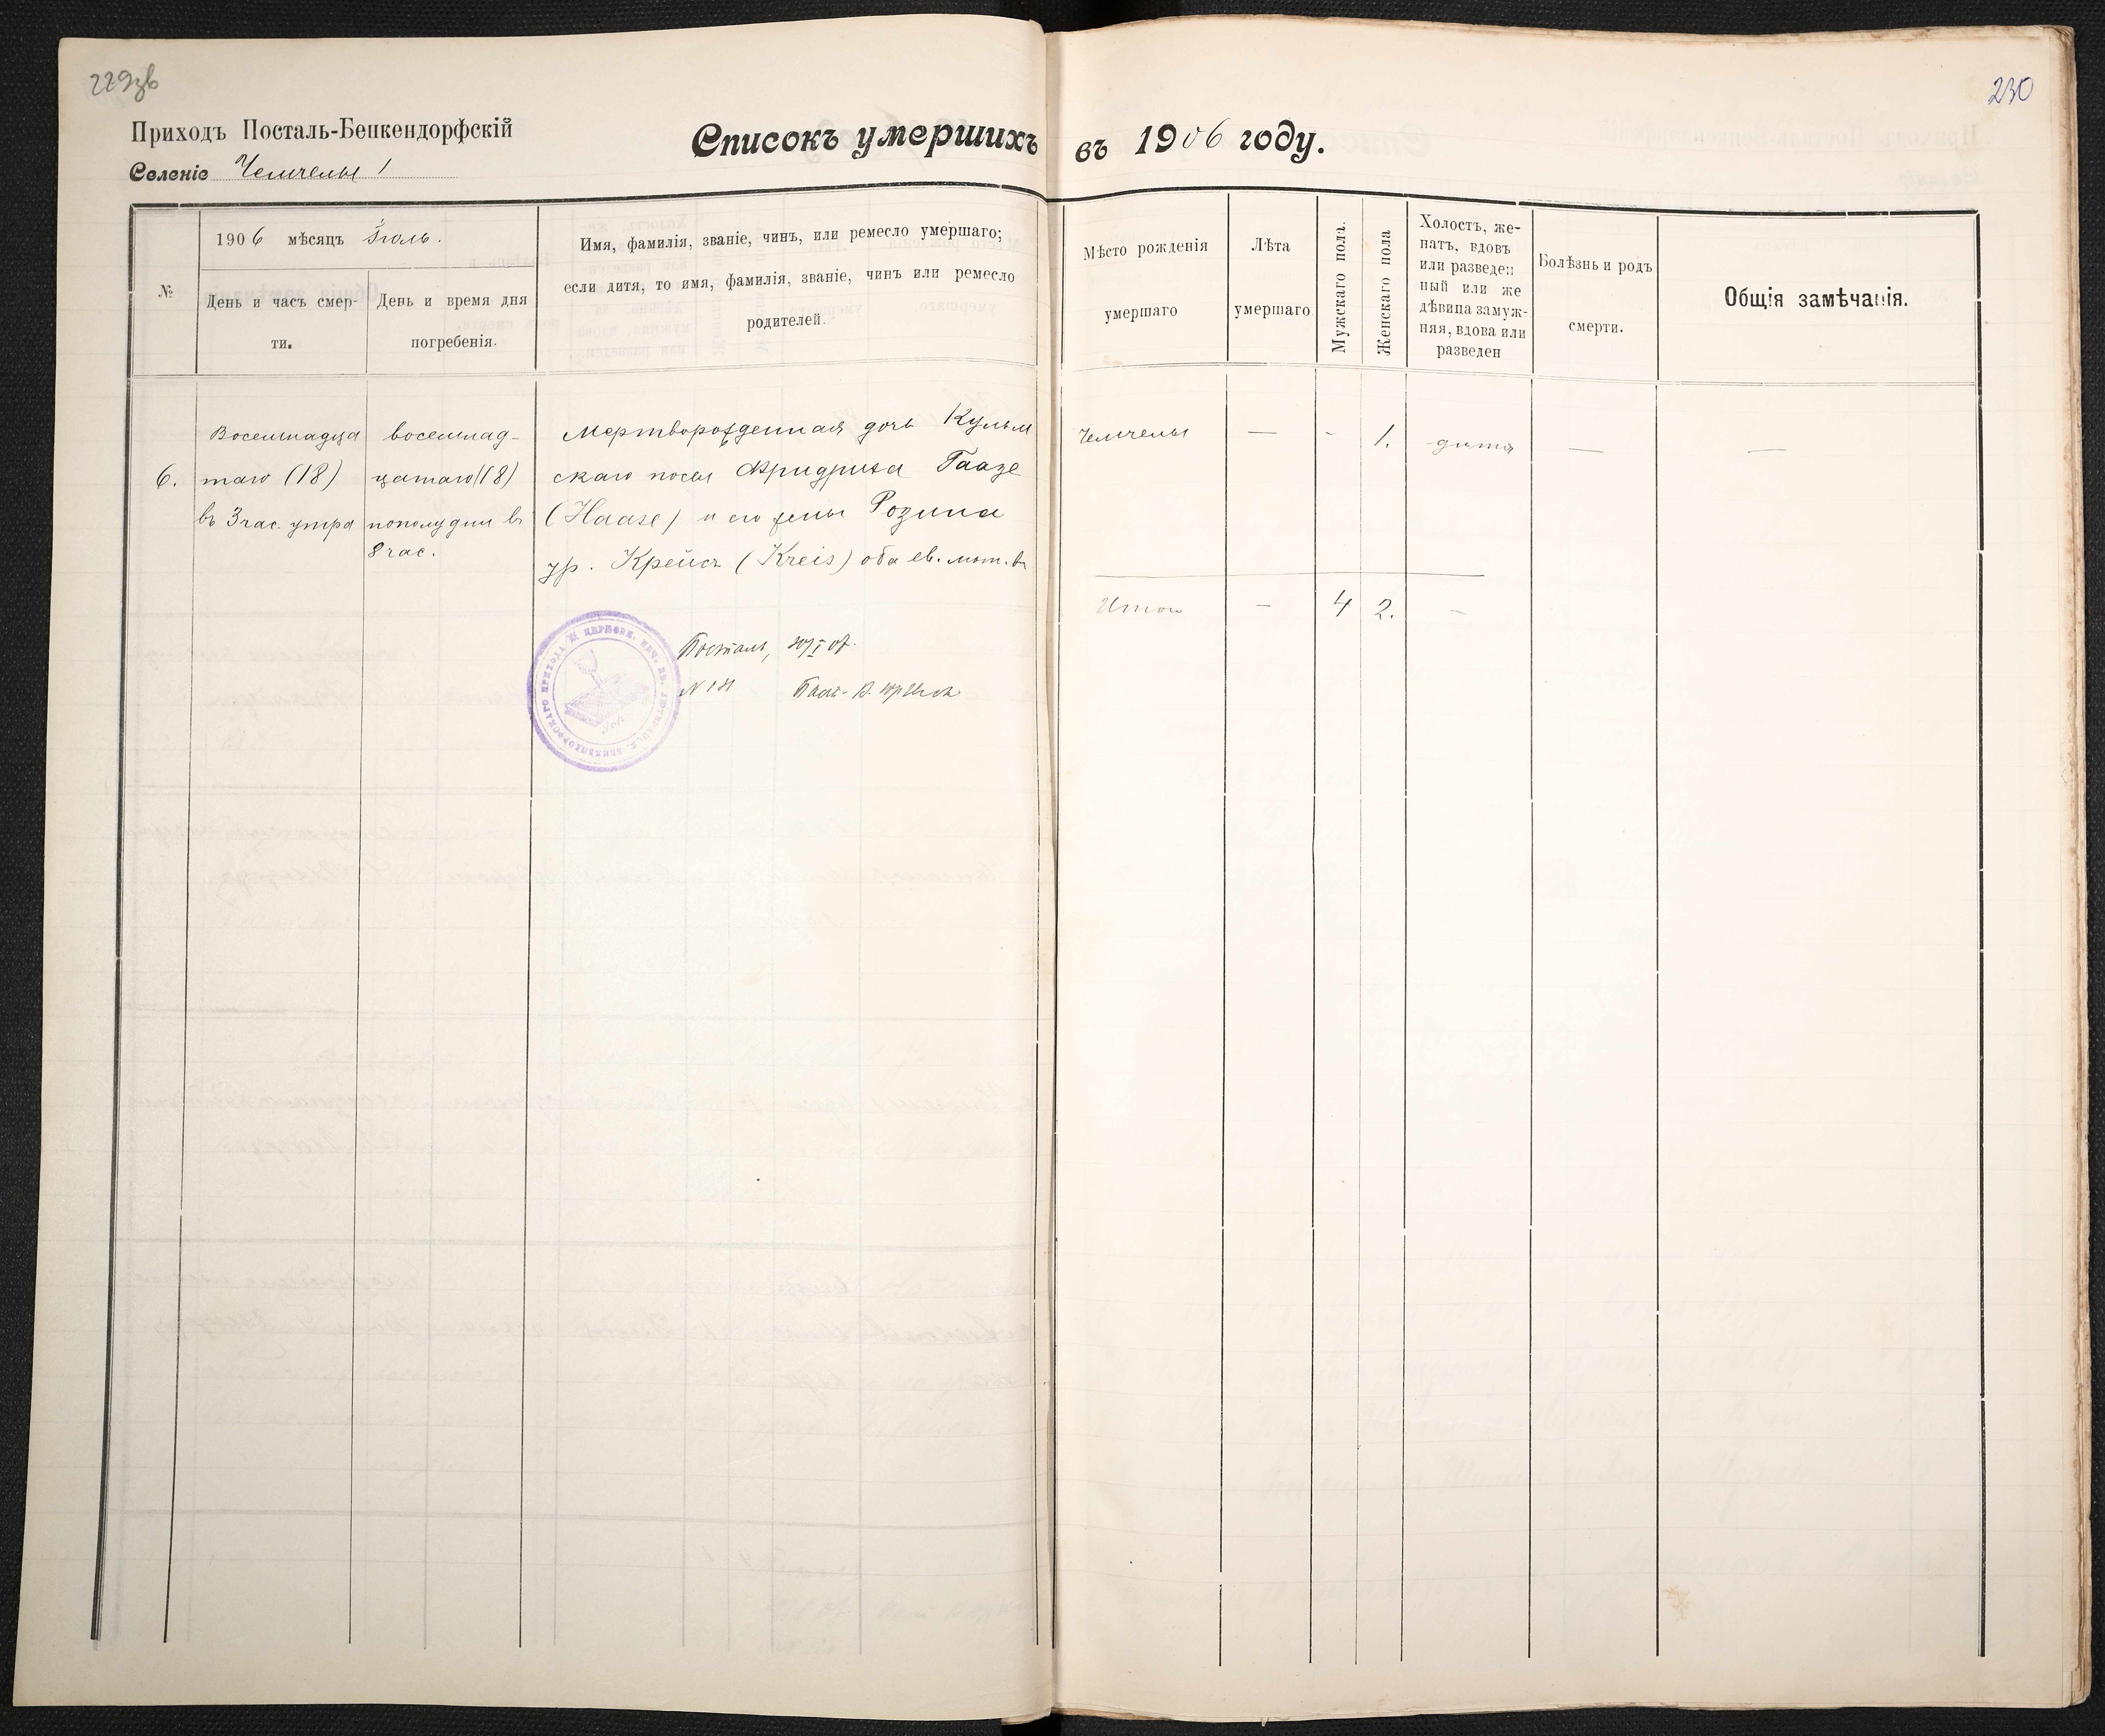 229зв
230
Приходъ Посталь-Бенкендорфскій
Селеніе Чемчелы 1
Списокъ умершихъ въ 1906 году.
№
1906 мѣсяцъ Іюль.
День и часъ смер-
ти.
День и время дня
погребенія.
Имя, фамилія, званіе, чинъ, или ремесло умершаго;
если дитя, то имя, фамилія, званіе, чинъ или ремесло
родителей.
Мѣсто рожденія
умершаго
Лѣта
умершаго
Мужскаго пола.
Женскаго пола
Холостъ, же-
натъ, вдовъ
или разведен
ный или же
дѣвица замуж-
няя, вдова или
разведен
Болѣзнь и родъ
смерти.
Общія замѣчанія.
6.
Восемнадца
таго (18)
въ 3 час. утра
восемнад-
цатаго (18)
пополудни въ
8 час.
Мертворожденная дочь Кульм
скаго посел Фридриха Гаазе
(Haase) и его жены Розина
ур. Крейсъ (Kreis) оба ев. лют. в
Чемчелы
—
-
1.
дитя
—
—
Итого
—
4
2.
—
Посталь,
N 181